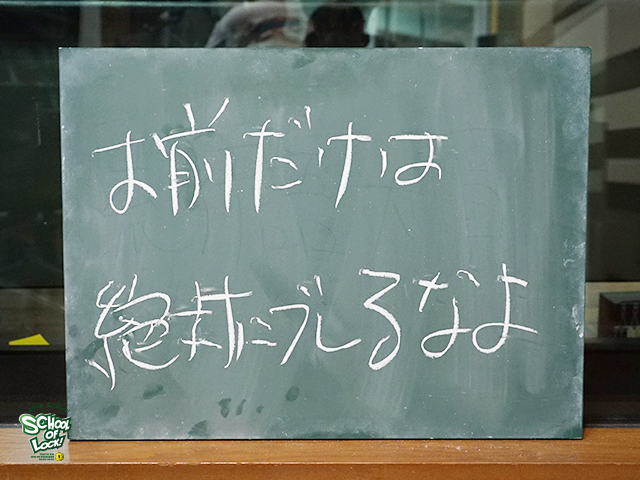 お前だけは
絶対にブレるなよ
SCHOOL
OF
LOCK!